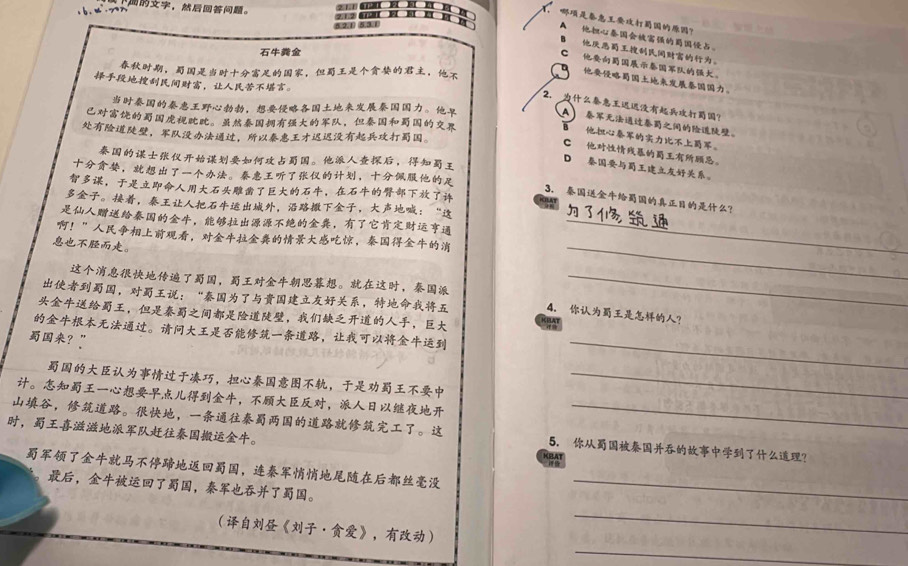 面的文字，然后回答问题。
石牛粪金
春秋时期，蜀国是当时十分富足的国家，但蜀王是个贪婪的君主，他不
择手段地搜刮民间财富，让人民苦不堪言。
当时秦国的秦惠王野心勃勃，想要侵略各国土地来发展秦国国力。他早
已对富饶的蜀国虎视眈眈。虽然秦国拥有强大的军队，但秦国和蜀国的交界
处有险道陡壁，军队没办法通过，所以秦惠王才迟迟没有起兵攻打蜀国。
秦国的谋士张仪开始谋划要如何攻占蜀国。他派人查探后，得知蜀王
十分贪婪，就想出了一个办法。秦惠王听了张仪的计划，十分佩服他的足
智多谋，于是立即命人用大石头雕凿了巨大的石牛，在石牛的臀部下放了许
多金子。接着，秦王让人把石牛运出城外，沿路撒下金子，大声地喊：“这
是仙人赠送给秦国的金牛，能够拉出源源不绝的金粪，有了它肯定财运亨通
啊！”人民争相上前观看，对金牛拉金粪的情景大感吃惊，秦国得金牛的消
息也不胫而走。
这个消息很快地传遍了蜀国，蜀王对金牛朝思暮想。就在这时，秦国派
出使者到蜀国，对蜀王说：“秦国为了与贵国建立友好关系，特地命我将五
头金牛送给蜀王，但是秦蜀之间都是险道陡壁，我们缺乏开道的人手，巨大
的金牛根本无法通过。请问大王是否能修筑一条道路，让我可以将金牛运到
蜀国来？”
蜀国的大臣认为事情过于凑巧，担心秦国意图不轨，于是劝蜀王不要中
计。怎知蜀王一心想要早点儿得到金牛，不顾大臣反对，派人日以继夜地开
山填谷，修筑道路。很快地，一条通往秦蜀两国的道路就修筑完工了。这
时，蜀王喜滋滋地派军队赶往秦国搬运金牛。
蜀军领了金牛就马不停蹄地返回蜀国，连秦军悄悄地尾随在后都丝毫没
。最后，金牛被运回了蜀国，秦军也吞并了蜀国。
（译自刘昼《刘子·贪爱》，有改动）
1. 哪项是秦惠王要攻打蜀国的原因？
A 他担心秦国会被富强的蜀国侵占。
B 他厌恶蜀王搜刮民间财富的行为。
C 他要向蜀国展示秦国军队的强大。
D 他要侵略蜀国土地来发展秦国国力。
2. 为什么秦惠王迟迟没有起兵攻打蜀国？
A 秦军无法通过秦蜀之间的险道陡壁。
B 他担心秦军的实力比不上蜀军。
C 他对性情残暴的蜀王有所顾忌。
D 秦国要与蜀王建立友好关系。
3. 秦国送金牛给蜀国的真正目的是什么？
KBAT
为了修筑通
4. 你认为蜀王是怎样的人？
KBAT
评价
5. 你从蜀国被秦国并吞的故事中学到了什么道理？
KBAT
评价